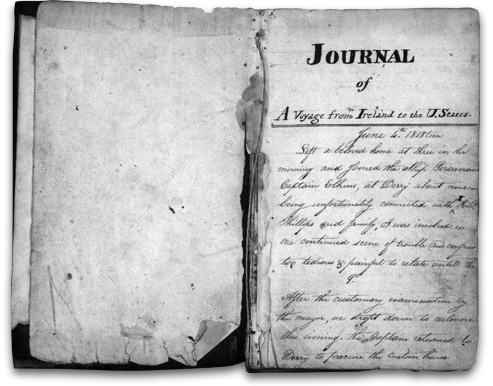 JOURNAL
of
A Voyage from Ireland to the U. States.
June 4th. 1818
Left a beloved home at three in the
morning and joined the ship Perseverance
Captain Elkins, at Derry about nine
being unfortunately connected with
Phillips and family, I was involved in
one continued scene of trouble and confusion
too tedious & painful to relate until the
9th
After the customary examination by
the mayor, we dropt down to
this evening the Captain returned to
Derry to procure the custom house